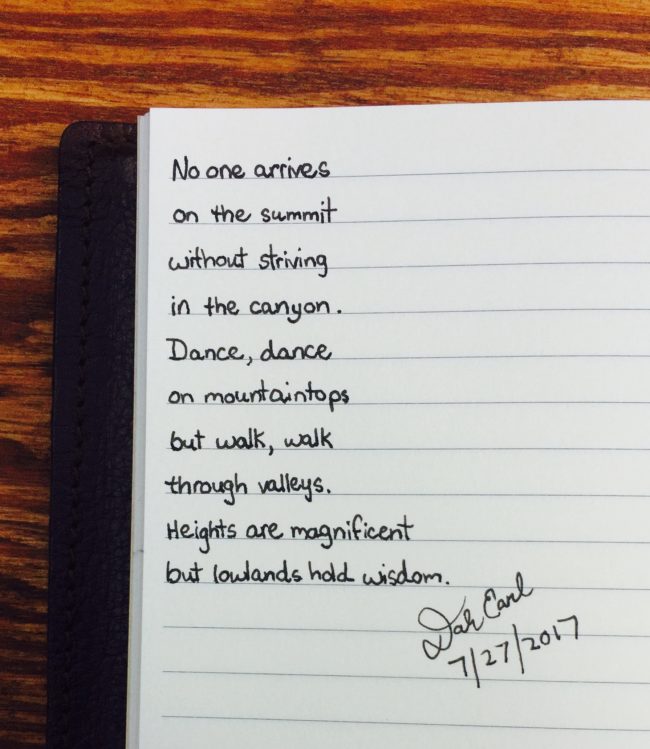 No one arrives
on the summit
without striving
in the canyon.
Dance, dance
on mountaintops
but walk, walk
through valleys.
Heights are magnificent
but lowlands hold wisdom.
Earl
7/27/2017